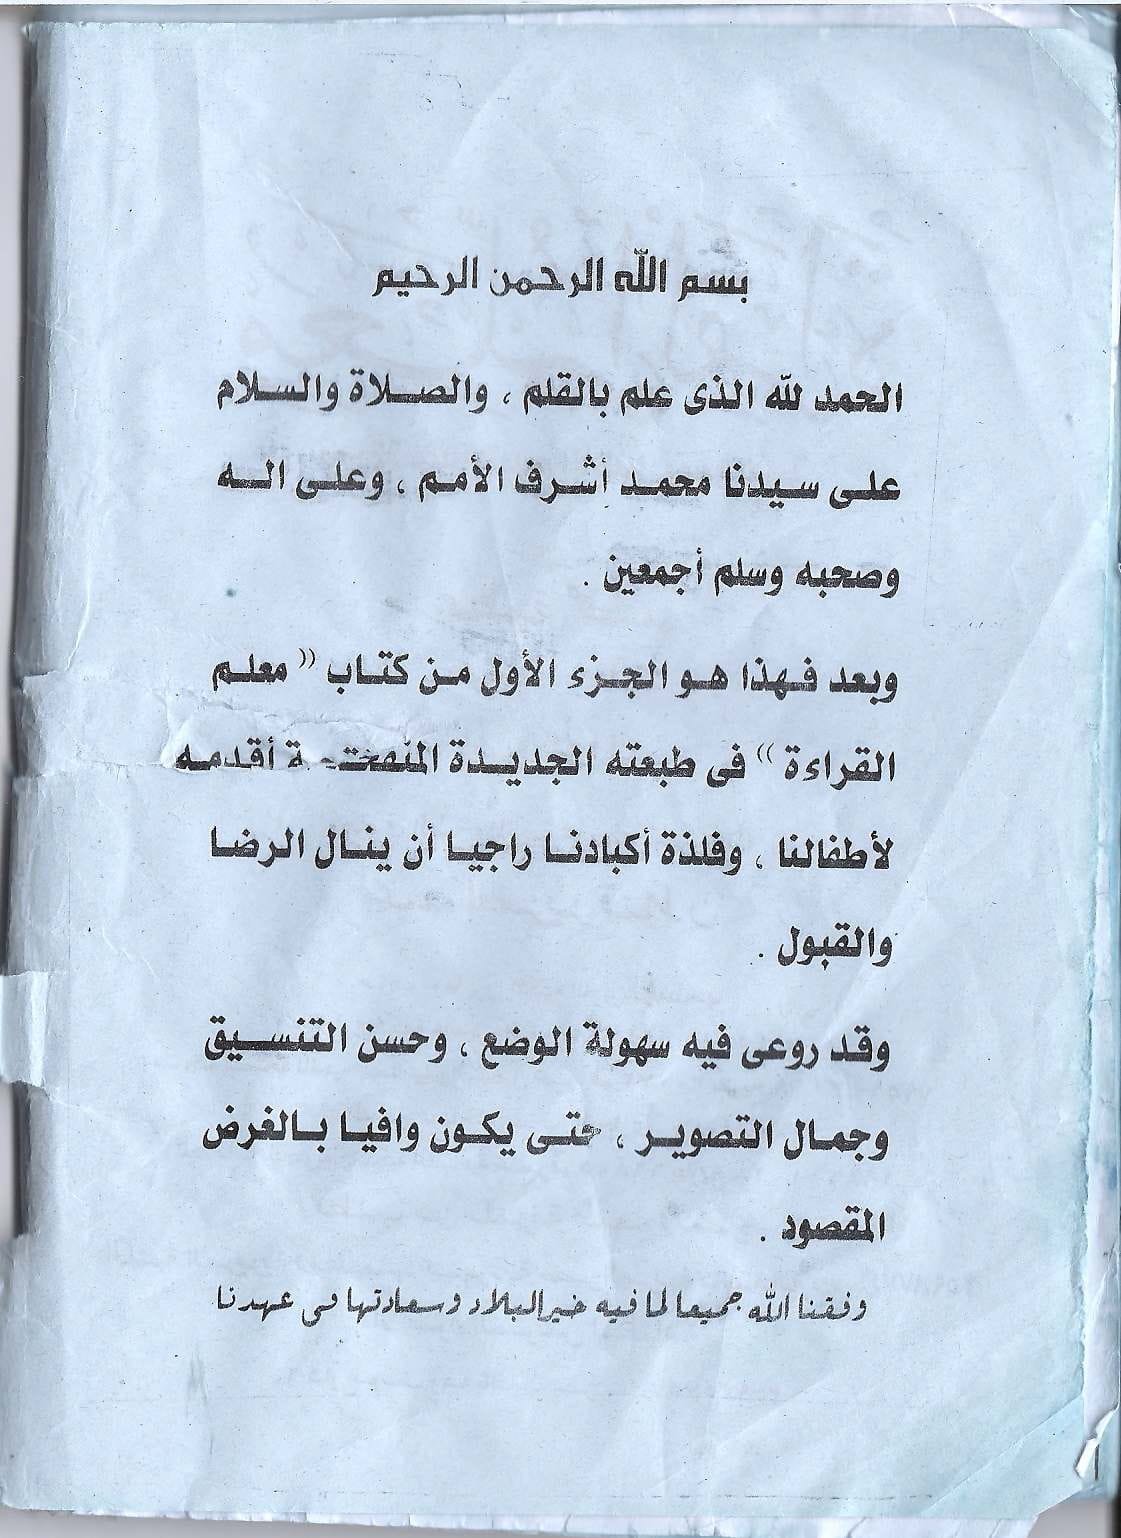 بسم الله الرحمن الرحيم
الحمد لله الذى علم بالقلم ، والصلاة والسلام
على سيدنا محمد أشرف الأمم ، وعلى اله
وصحبه وسلم أجمعين .
وبعد فهذا هو الجزء الأول من كتاب (( معلم
القراءة )) فى طبعته الجديدة أقدمه
لأطفالنا ، وفلذة أكبادنا راجيا أن ينال الرضا
والقبول .
وقد روعى فيه سهولة الوضع ، وحسن التنسيق
وجمال التصوير ، حتى يكون وافيا بالغرض
المقصود .
وفقنا الله جميعا لما فيه خير البلاد وسعادتها فى عهدنا